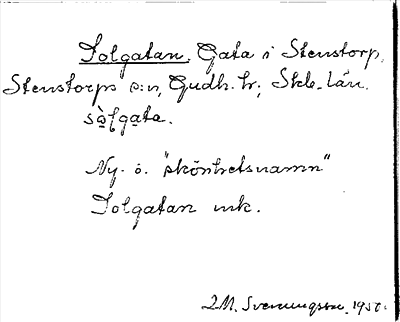 Solgatan. Gata i Stenstorp,
Stenstorps s:n, Gudh. hr; Skb. län.
sò̱lga̱ta.
Ny- o. "skönhetsnamn"
Solgatan mk.
Sveningsson, 1950.